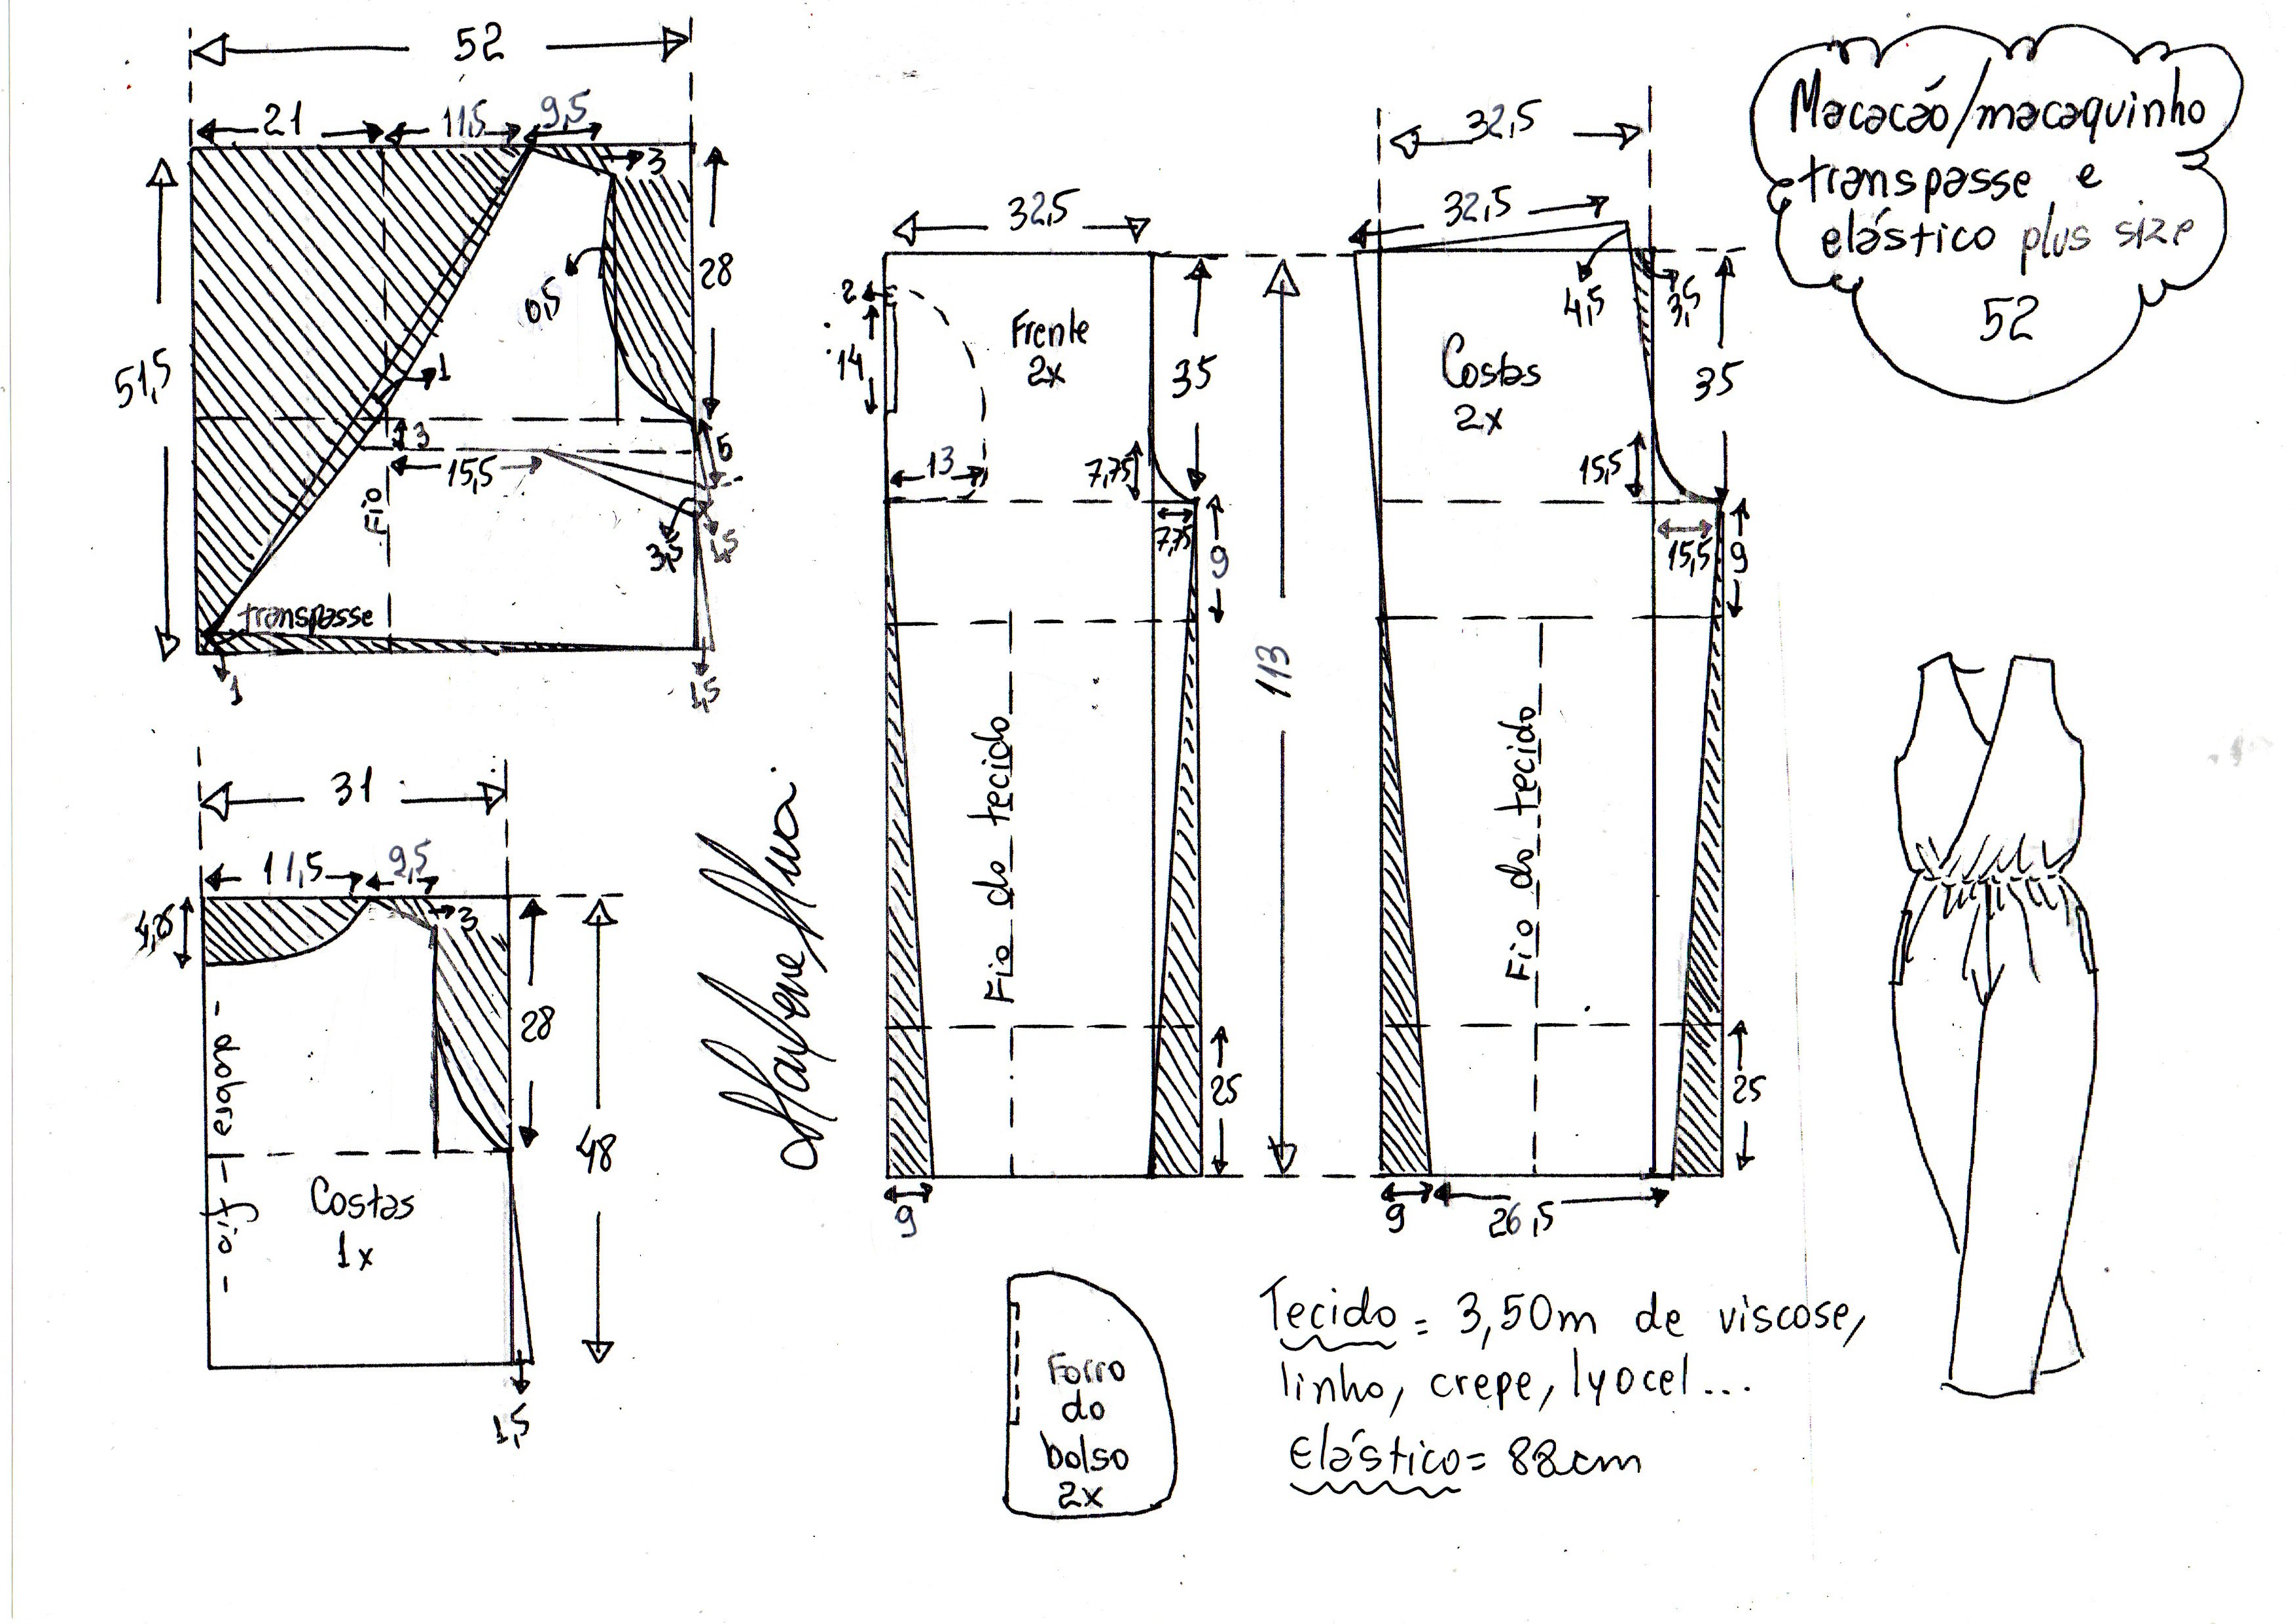 52
21
11,5
9,5
3
28
51,5
0,5
1
3
5
15,5
Fio
3,5
1,5
transpasse
1
1,5
31
11,5
9,5
3
28
48
- dobra - fio -
Costas
1x
1,5
32,5
2
14
Frente
2x
35
13
7,75
7,75
9
Fio do tecido
25
9
113
32,5
32,5
4,5
3,5
Costas
2x
35
15,5
15,5
9
Fio do tecido
25
9
26,5
Macacão/macaquinho
transpasse e
elástico plus size
52
Forro
do
bolso
2x
Tecido = 3,50m de viscose,
linho, crepe, lyocel...
Elástico = 88cm